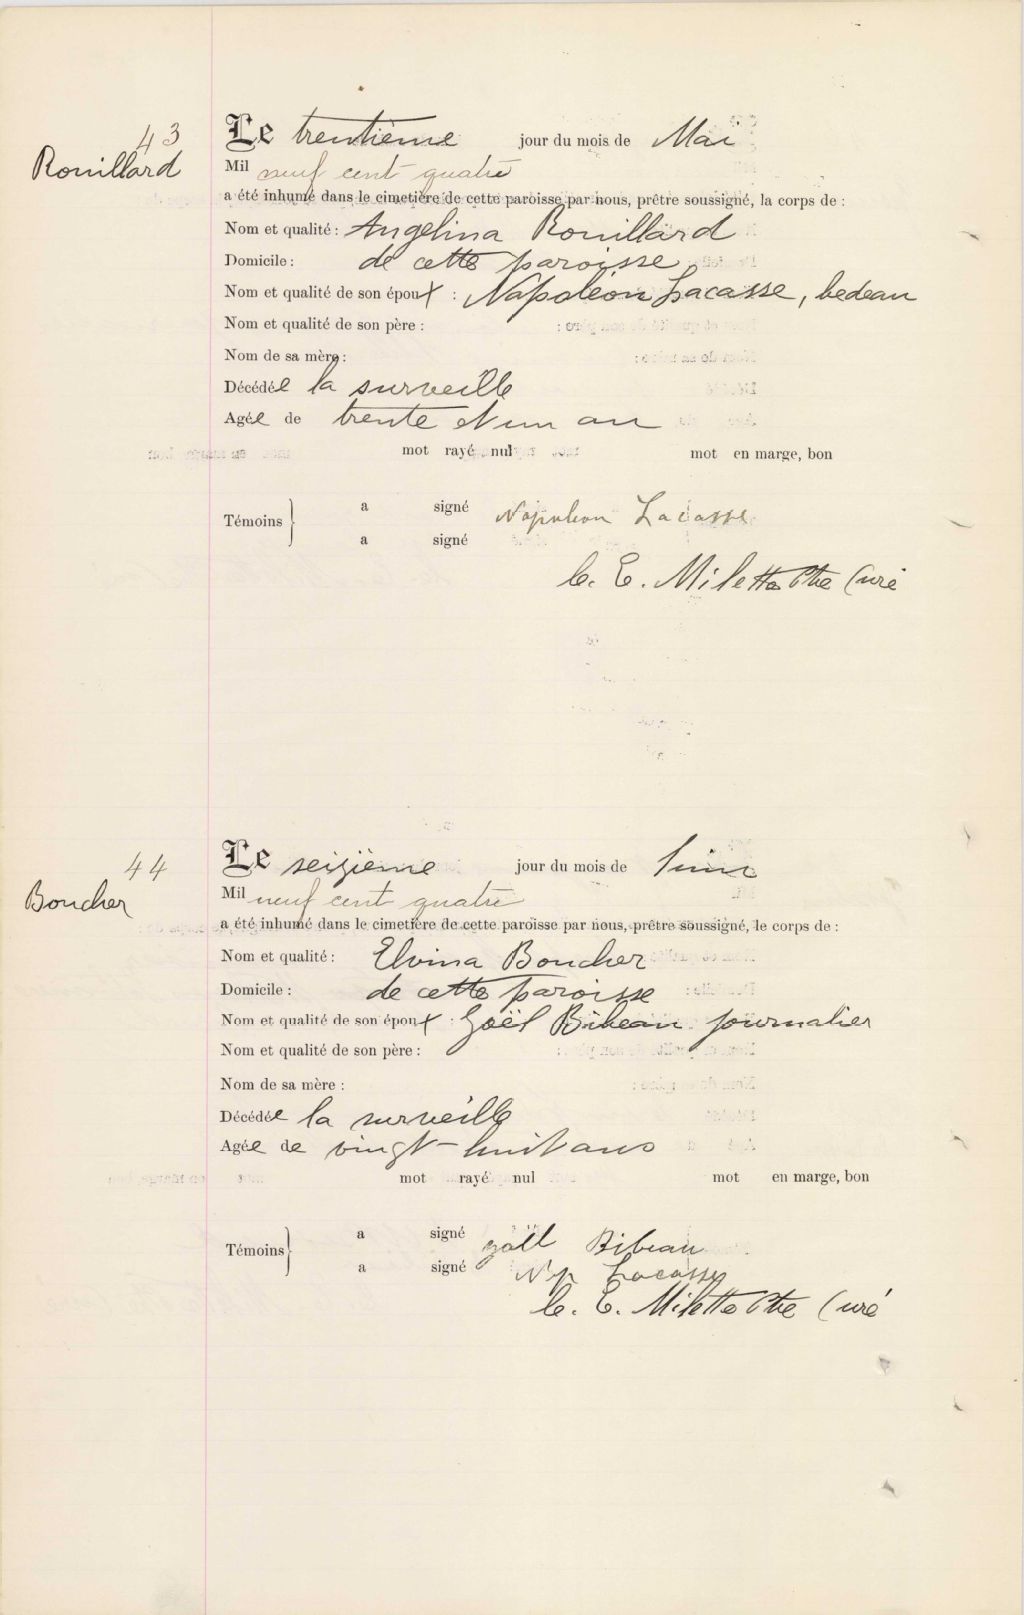 43
Rouillard
Le trentième jour du mois de Mai
Mil neuf cent quatre
a été inhumé dans le cimetière de cette paroisse par nous, prêtre soussigné, la corps de :
Nom et qualité : Angelina Rouillard
Domicile : de cette paroisse
Nom et qualité de son époux : Napoléon Lacasse, bedeau
Nom et qualité de son père :
Nom de sa mère :
Décédée la surveille
Agée de trente et un an
mot rayé nul mot en marge, bon
Témoins } a signé Napoleon Lacasse
a signé
C. E. Milette Ptre Curé
44
Boucher
Le seizième jour du mois de Juin
Mil neuf cent quatre
a été inhumé dans le cimetière de cette paroisse par nous, prêtre soussigné, le corps de :
Nom et qualité : Elvina Boucher
Domicile : de cette paroisse
Nom et qualité de son époux : Joël Bibeau journalier
Nom et qualité de son père :
Nom de sa mère :
Décédée la surveille
Agée de vingt-huit ans
mot rayé nul mot en marge, bon
Témoins } a signé Joël Bibeau
a signé Nap Lacasse
C. E. Milette Ptre Curé